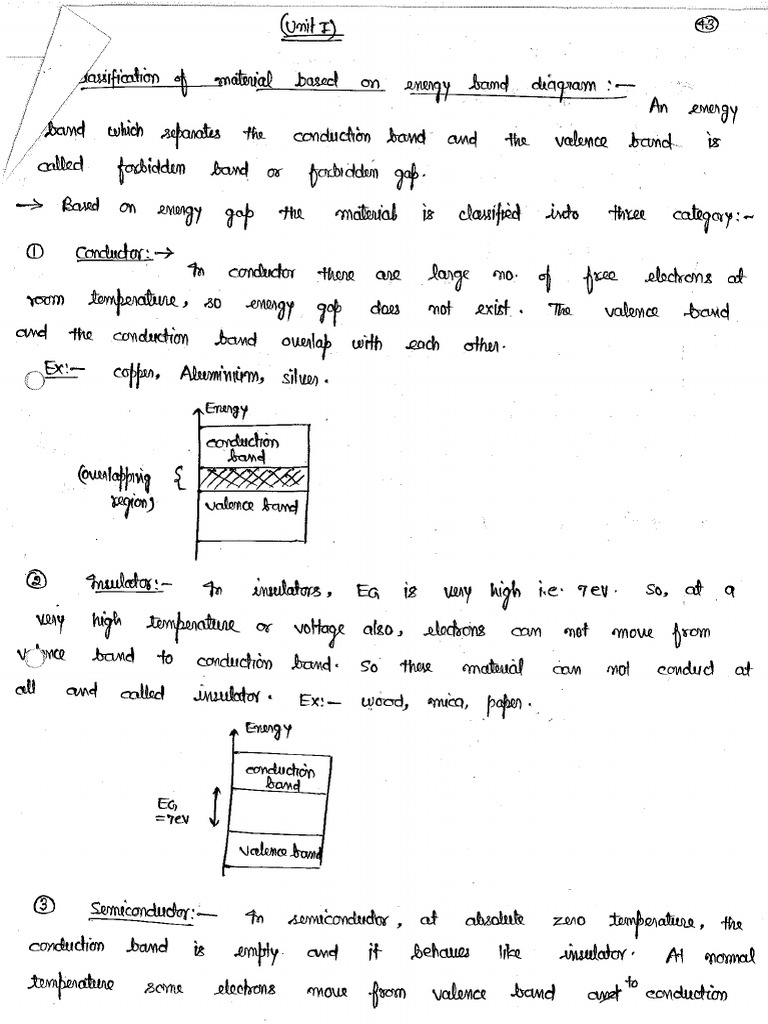 (Unit I)
43
classification of material based on energy band diagram :-
An energy
band which separates the conduction band and the valence band is
called forbidden band or forbidden gap.
→ Based on energy gap the material is classified into three category:-
① Conductor:→
In conductor there are large no. of free electrons at
room temperature, so energy gap does not exist. The valence band
and the conduction band overlap with each other.
Ex:- copper, Aluminium, silver.
Energy
conduction
band
(overlapping
region)
valence band
② Insulator:- In insulators, EG is very high i.e. 7ev. So, at a
very high temperature or voltage also, electrons can not move from
valence band to conduction band. So these material can not conduct at
all and called insulator. Ex:- wood, mica, paper.
Energy
conduction
band
EG
=7ev
valence band
③ Semiconductor:- In semiconductor, at absolute zero temperature, the
conduction band is empty and it behaves like insulator. At normal
temperature some electrons move from valence band to conduction